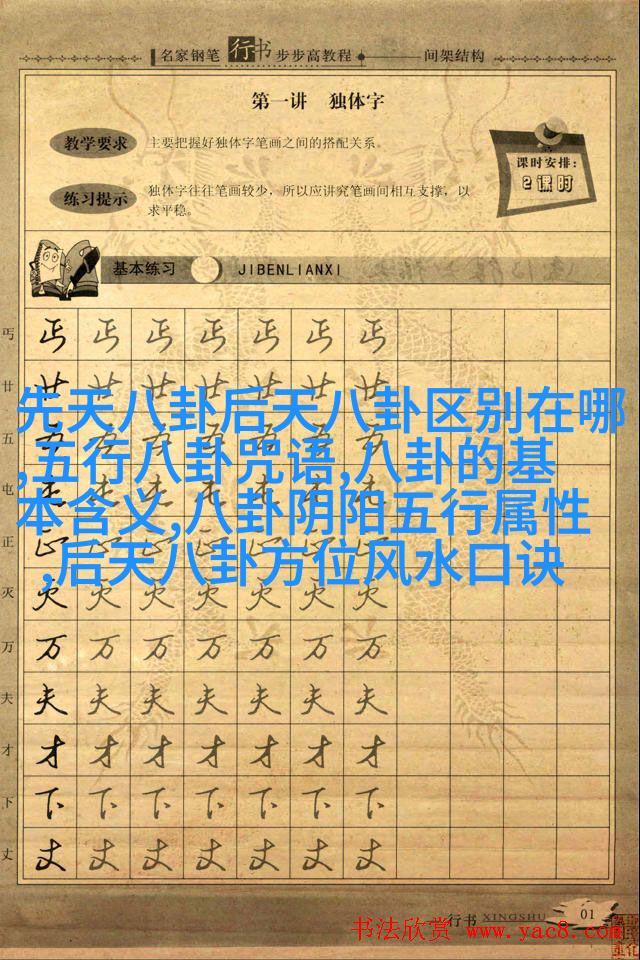 名家钢笔 行书 步步高教程 间架结构
第一讲 独体字
教学要求 主要把握好独体字笔画之间的搭配关系。
课时安排:
2课时
练习提示 独体字往往笔画较少,所以应讲究笔画间相互支撑,以
求平稳。
基本练习 JIBENLIANXI
丐 丐 丐 丐 丐 丐 丐 丐
廿 廿 廿 廿 廿 廿 廿 廿
先天八卦后天八卦区别在哪
五 五 五 五 五 五 五 五
,五行八卦咒语,八卦的基
屯 屯 屯 屯 屯 屯 屯 屯
本含义,八卦阴阳五行属性
正 正 正 正 正 正 正 正
,后天八卦方位风水口诀
灭 灭 灭 灭 灭 灭 灭 灭
万 万 万 万 万 万 万 万
夫 夫 夫 夫 夫 夫 夫 夫
才 才 才 才 才 才 才 才
下 下 下 下 下 下 下 下
丈 丈 丈 丈 丈 丈 丈 丈
行书 XINGSHU 01
书法欣赏 www.yac8.com